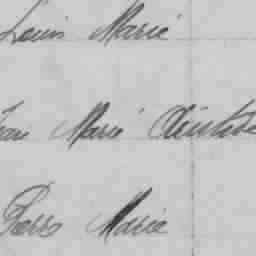 Louis Marie
Jean Marie
Pierre Marie